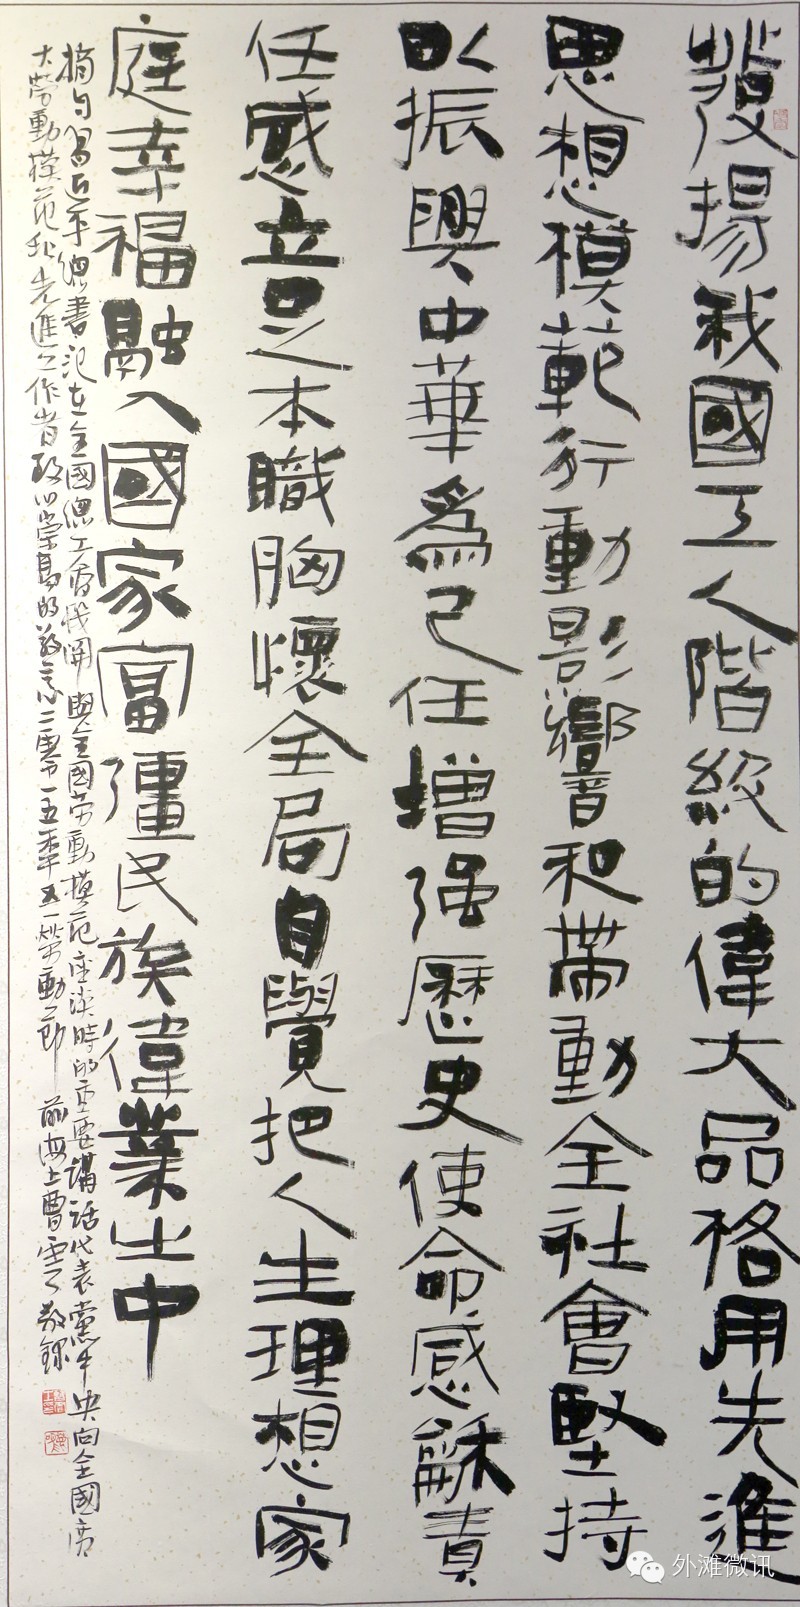 發揚我國工人階級的偉大品格用先進
思想模範行動影響和帶動全社會堅持
以振興中華爲己任增强歷史使命感和責
任感立足本職胸懷全局自覺把人生理想家
庭幸福融入國家富彊民族偉業之中
摘句習近平總書記在全國總工會我開與全國劳動模范座淡時的重要講話代表黨中央向全國广
大勞動模范和先進工作者致以崇高的敬意二零一五年五一勞動節 前海上曹雲敬錄
外滩微讯